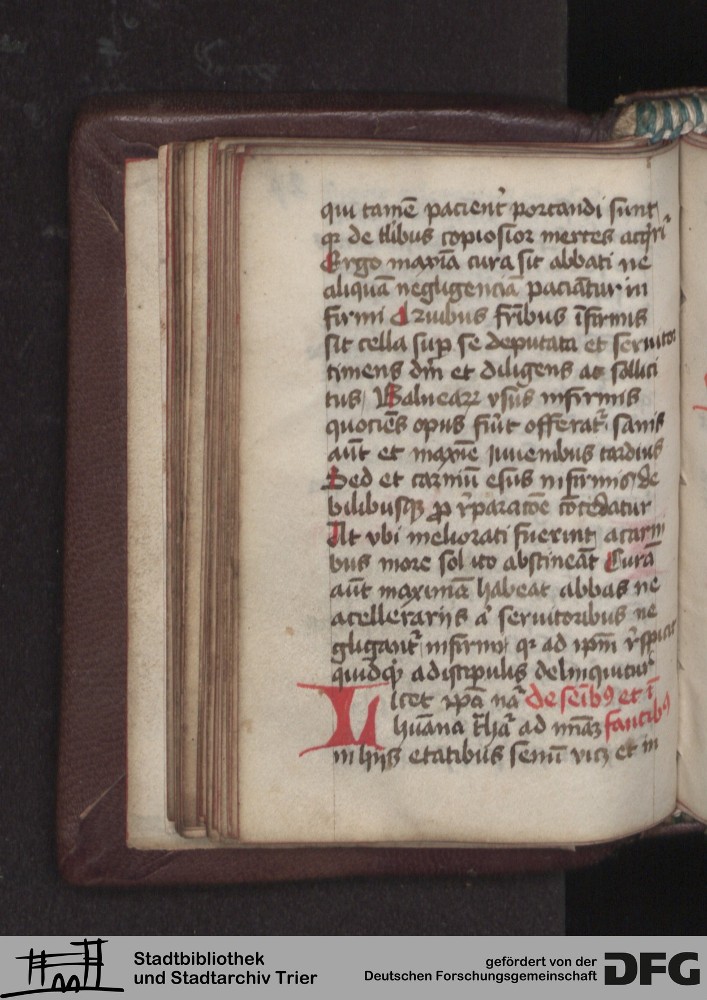 qui tamē pacient᷑ portandi sunt
qꝛ de tlibus copiosior merces acq̄ri᷑
Ergo maxīa cura sit abbati ne
aliquā negligenciā paciātur in
firmi Qruibus fr̄ibus īfirmis
sit cella suꝑ se deputata et seruitor
timens dm̄ et diligens ac sollici
tus Balneaꝝ vsus infirmis
quociēs opus fūt offerat᷑ sanis
aūt et maxīe iuuenibus tardius
Sed et carniū esus infirmis de
bilibusqꝫ ꝓ r̄paracōe cōcedatur
At vbi meliorati fuerint a carni
bus more solito abstineāt Curā
aūt maximā habeat abbas ne
a cellerariis a᷑ seruitoribus ne
gligant᷑ infirmi qꝛ ad ip̄m r̄spicit
quidq̄ a discipulis delinquitur
Licet ip̄a nā᷑ de seīb9 et ī
hūana t̄ha᷑ ad mīaꝫ fantib9
in hiis etatibus senū vicꝫ et in
Stadtbibliothek
und Stadtarchiv Trier
gefördert von der
Deutschen Forschungsgemeinschaft
DFG